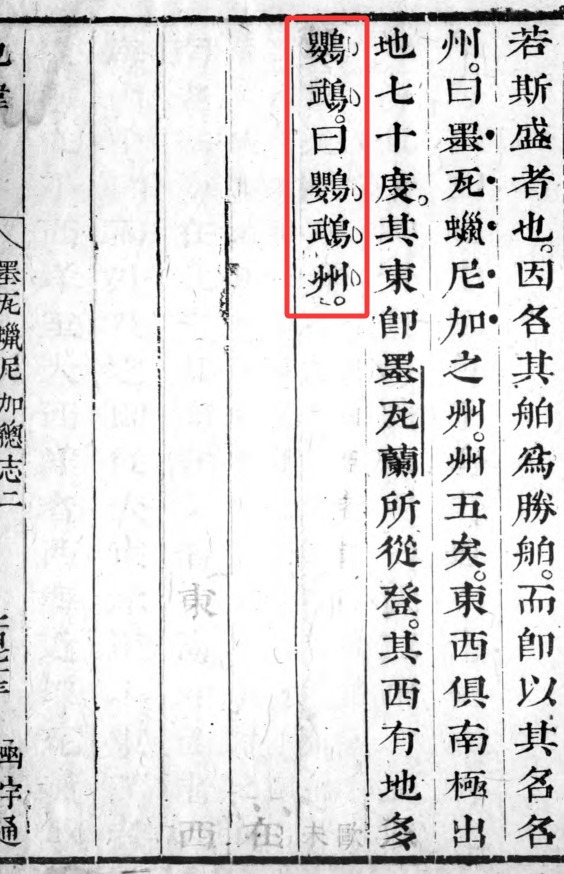 若斯盛者也。因名其舶爲勝舶。而卽以其名名
州。曰墨瓦蠟尼加之州。州五矣。東西俱南極出
地七十度。其東卽墨瓦蘭所從登。其西有地多
鸚䳇。曰鸚䳇州。
墨瓦蠟尼加總志二
函宇通